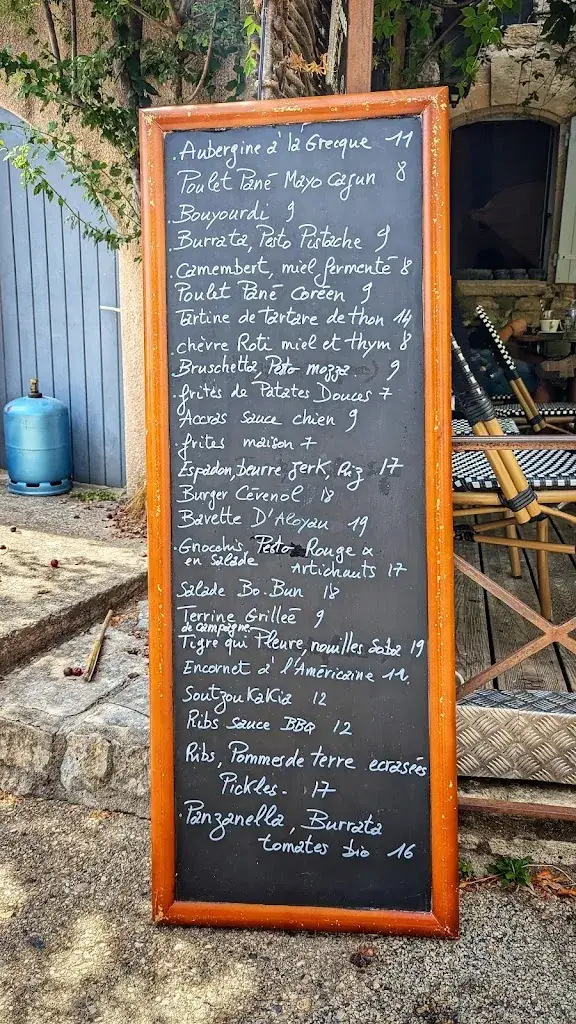 . Aubergine à la Grecque 11
Poulet Pané Mayo Cajun 8
Bouyourdi 9
Burrata, Pesto Pistache 9
Camembert, miel fermenté 8
Poulet Pané Coréen 9
Tartine de tartare de thon 14
. chèvre Roti miel et thym 8
Bruschetta, Pesto mozza. 9
. frites de Patates Douces 7
Accras sauce chien 9
. frites maison 7
Espadon, beurre jerk, Riz 17
Burger Cévenol 18
Bavette D'Aloyau 19
. Gnocchis, Pesto Rouge &
en Salade Artichauts 17
Salade Bo.Bun 18
Terrine Grilleé 9
de campagne
Tigre qui Pleure, nouilles Soba 19
Encornet à l'Américaine
Soutzoukakia 12
Ribs sauce BBQ 12
Ribs, Pommes de terre ecrasées
Pickles - 17
. Panzanella, Burrata
tomates bio 16